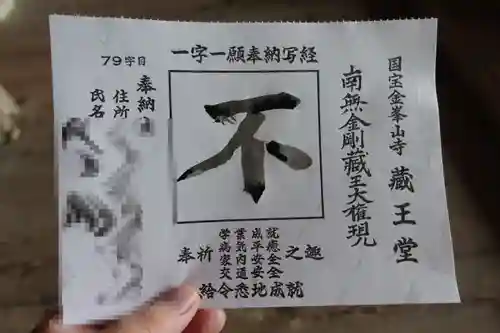 国宝金峯山寺 蔵王堂
南無金剛蔵王大権現
一字一願奉納写経
不
79字目
奉納
住所
氏名
奉祈
就癒金全
成平安安
業気内通
学病家交
之趣
就成地悉令給